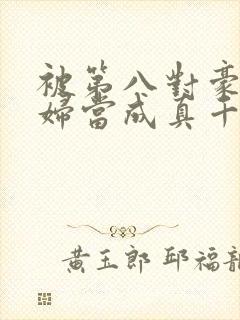 被第八對豪
婦當成真千
黃玉郎 邱福龍